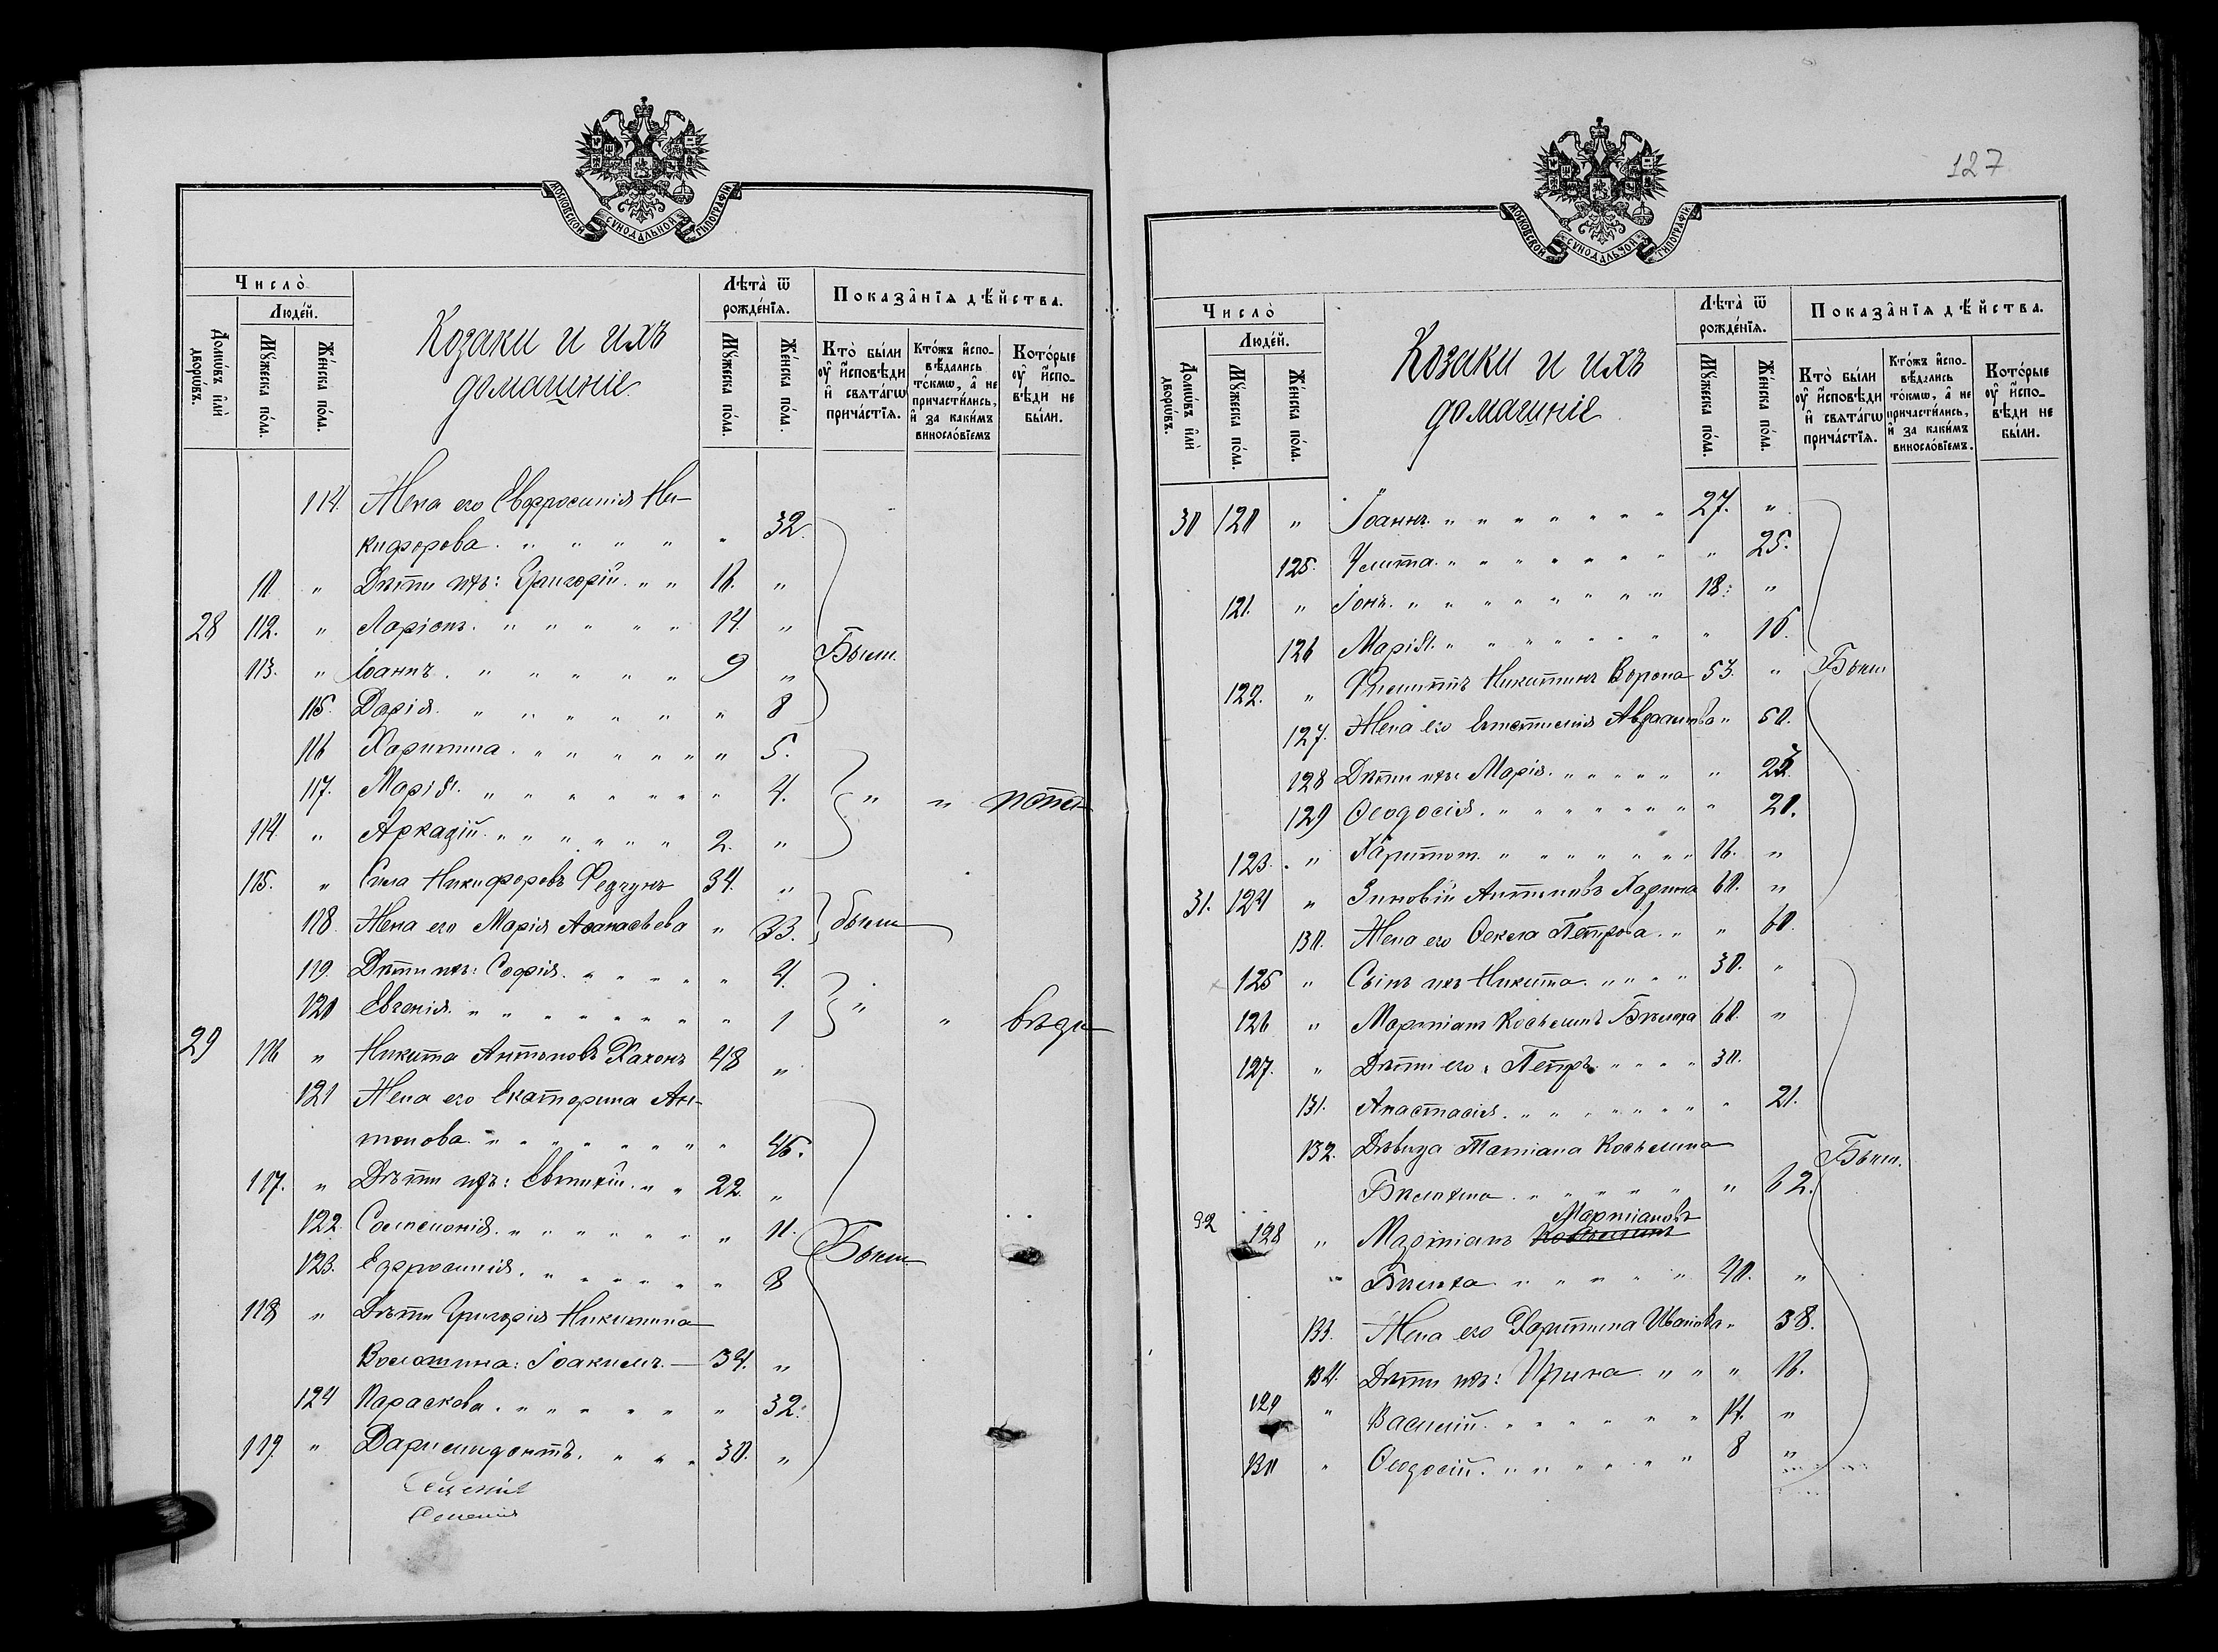 МОСКОВСКОЙ СѴНОДАЛЬНОЙ ТИПОГРАФІИ
Число̀
Люде́й.
Домѡ́въ и҆лѝ дворѡ́въ.
Мꙋ́жеска по́ла.
Же́нска по́ла.
Козаки и ихъ
домашніе
Лѣта̀ ѿ рожде́нїѧ.
Мꙋ́жеска по́ла.
Же́нска по́ла.
Показа̑нїѧ дѣ́йства.
Кто̀ бы́ли ᲂу҆ и҆сповѣ́ди и҆ свѧта́гѡ прича́стїѧ.
Кто́жъ и҆сповѣ́дались то́кмѡ, а҆ не причасти́лись, и҆ за каки́мъ виносло́вїемъ
Кото́рые ᲂу҆ и҆сповѣ́ди не бы́ли.
114. Жена его Евфросинія Ни-
кифорова. " " " " " 32.
111 " Дѣти ихъ: Григорій. " " 16. "
28 112. " Ларіонъ. " " " " " 14. "
113. " Іоаннъ. " " " " " 9 " Были.
115. Дарія. " " " " " " 8
116 Харитина. " " " " " " 5.
117. Марія. " " " " " " " 4. " "
114. " Аркадій. " " " " " " 2. "
115. " Сила Никифоровъ 34. "
118. Жена его Марія Аѳанасьева " 33. были
119. Дѣти ихъ: Софія. " " " " " 4.
120 Евгенія. " " " " " " " " 1 " "
29 116 " Никита Антоновъ 48 "
121 Жена его Екатерина Ан-
тонова. " " " " " " " 45.
117. " Дѣти ихъ: Евтихій. " " 22. "
122. Соломонія. " " " " " " " 11. Были
123. Ефросинія. " " " " " " 8
118 " Дѣти Григорія Никитина
Волошина: Іоакимъ. — 34. "
124 Параскева. " " " " " " 32.
119. " 30. "
127
МОСКОВСКОЙ СѴНОДАЛЬНОЙ ТИПОГРАФІИ
Число̀
Люде́й.
Домѡ́въ и҆лѝ дворѡ́въ.
Мꙋ́жеска по́ла.
Же́нска по́ла.
Козаки и ихъ
домашніе
Лѣта̀ ѿ рожде́нїѧ.
Мꙋ́жеска по́ла.
Же́нска по́ла.
Показа̑нїѧ дѣ́йства.
Кто̀ бы́ли ᲂу҆ и҆сповѣ́ди и҆ свѧта́гѡ прича́стїѧ.
Кто́жъ и҆сповѣ́дались то́кмѡ, а҆ не причасти́лись, и҆ за каки́мъ виносло́вїемъ.
Кото́рые ᲂу҆ и҆сповѣ́ди не бы́ли.
30 120 " Іоаннъ. " " " " " " " 27. "
125. Улита. " " " " " " " " 25.
121. " Іонъ. " " " " " " " " 18. "
126 Марія. " " " " " " " " 16.
122. " Никитинъ Ворона 53. " Были
127. Жена его " 50.
128 Дѣти ихъ: Марія. " " " " " "
129 Ѳеодосія. " " " " " " " " 20.
123. " Харитон. " " " " " " " 16. "
31. 124 " Зиновій Антоновъ 60. "
130. Жена его Ѳекла Петрова. " " 60.
125 " Сынъ ихъ Никита. " " " " 30. "
126 " Мартіанъ 60. "
127. " Дѣти его: Петръ. " " " " 30.
131. Анастасія. " " " " " " " " 21.
132. Дѣвица Татіана
" " " " " " 62. Были.
Мартіановъ
32 128 " Мартіанъ
" " " " " 40. "
133. Жена его Харитина Иванова " 38.
134. Дѣти ихъ: Ирина. " " " 16.
129 " Василій. " " " " " " 14. "
130 " Ѳеодосій. " " " " " " 8 "